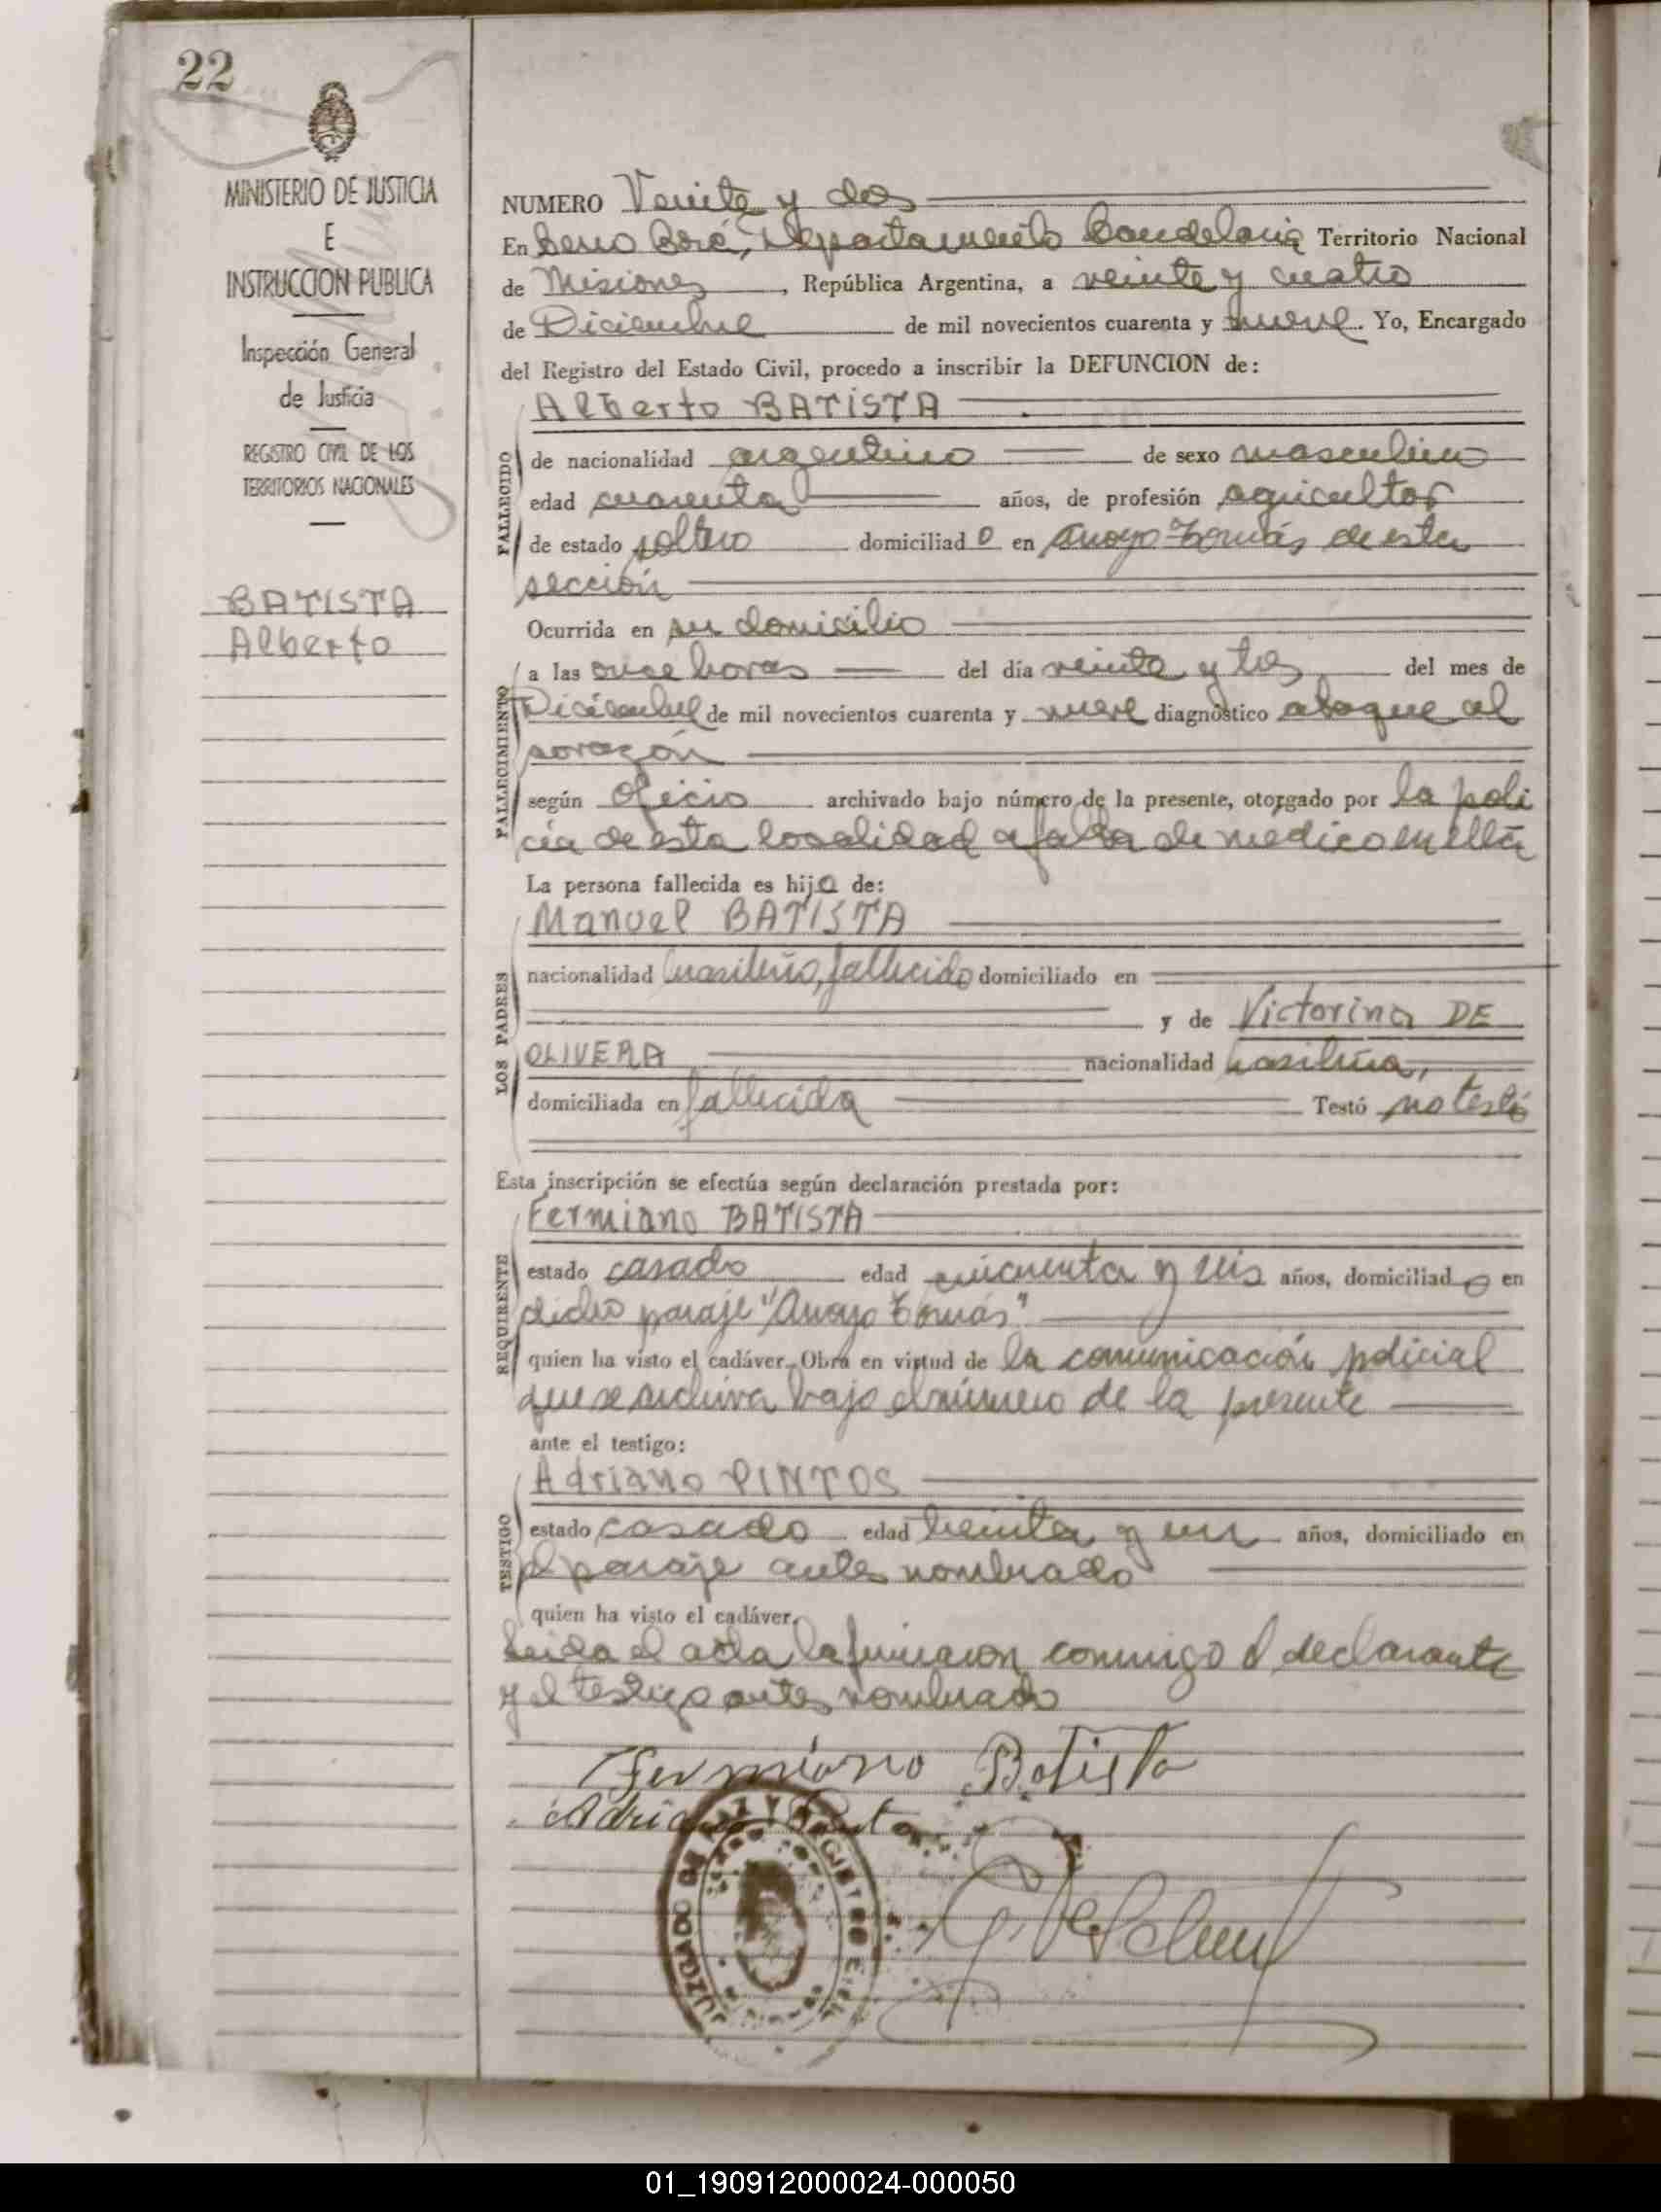 22
MINISTERIO DE JUSTICIA
E
INSTRUCCION PUBLICA
Inspección General
de Justicia
REGISTRO CIVIL DE LOS
TERRITORIOS NACIONALES
BATISTA
Alberto
NUMERO Veinte y dos
En Cerro Corá, Departamento Candelaria Territorio Nacional
de Misiones, República Argentina, a veinte y cuatro
de Diciembre de mil novecientos cuarenta y nueve. Yo, Encargado
del Registro del Estado Civil, procedo a inscribir la DEFUNCION de:
Alberto BATISTA
FALLECIDO
de nacionalidad argentino de sexo masculino
edad cuarenta años, de profesión agricultor
de estado soltero domiciliado en Arroyo Tomás de esta
sección
Ocurrida en su domicilio
FALLECIMIENTO
a las once horas del día veinte y tres del mes de
Diciembre de mil novecientos cuarenta y nueve diagnóstico ataque al
corazón
según oficio archivado bajo número de la presente, otorgado por la poli
cía de esta localidad a falta de medico en ella
La persona fallecida es hijo de:
Manuel BATISTA
LOS PADRES
nacionalidad brasileño, fallecido domiciliado en
y de Victorina DE
OLIVERA nacionalidad brasileña,
domiciliada en fallecida Testó no testó
Esta inscripción se efectúa según declaración prestada por:
Fermiano BATISTA
REQUIRENTE
estado casado edad cincuenta y seis años, domiciliado en
dicho paraje "Arroyo Tomás"
quien ha visto el cadáver. Obra en virtud de la comunicación policial
que se archiva bajo el número de la presente
ante el testigo:
Adriano PINTOS
TESTIGO
estado casado edad treinta y un años, domiciliado en
el paraje antes nombrado
quien ha visto el cadáver.
Leida el acta la firmaron conmigo el declarante
y el testigo antes nombrado
Fermiano Batista
Adriano
JUZGADO DE PAZ Y REGISTRO CIVIL
01_190912000024-000050